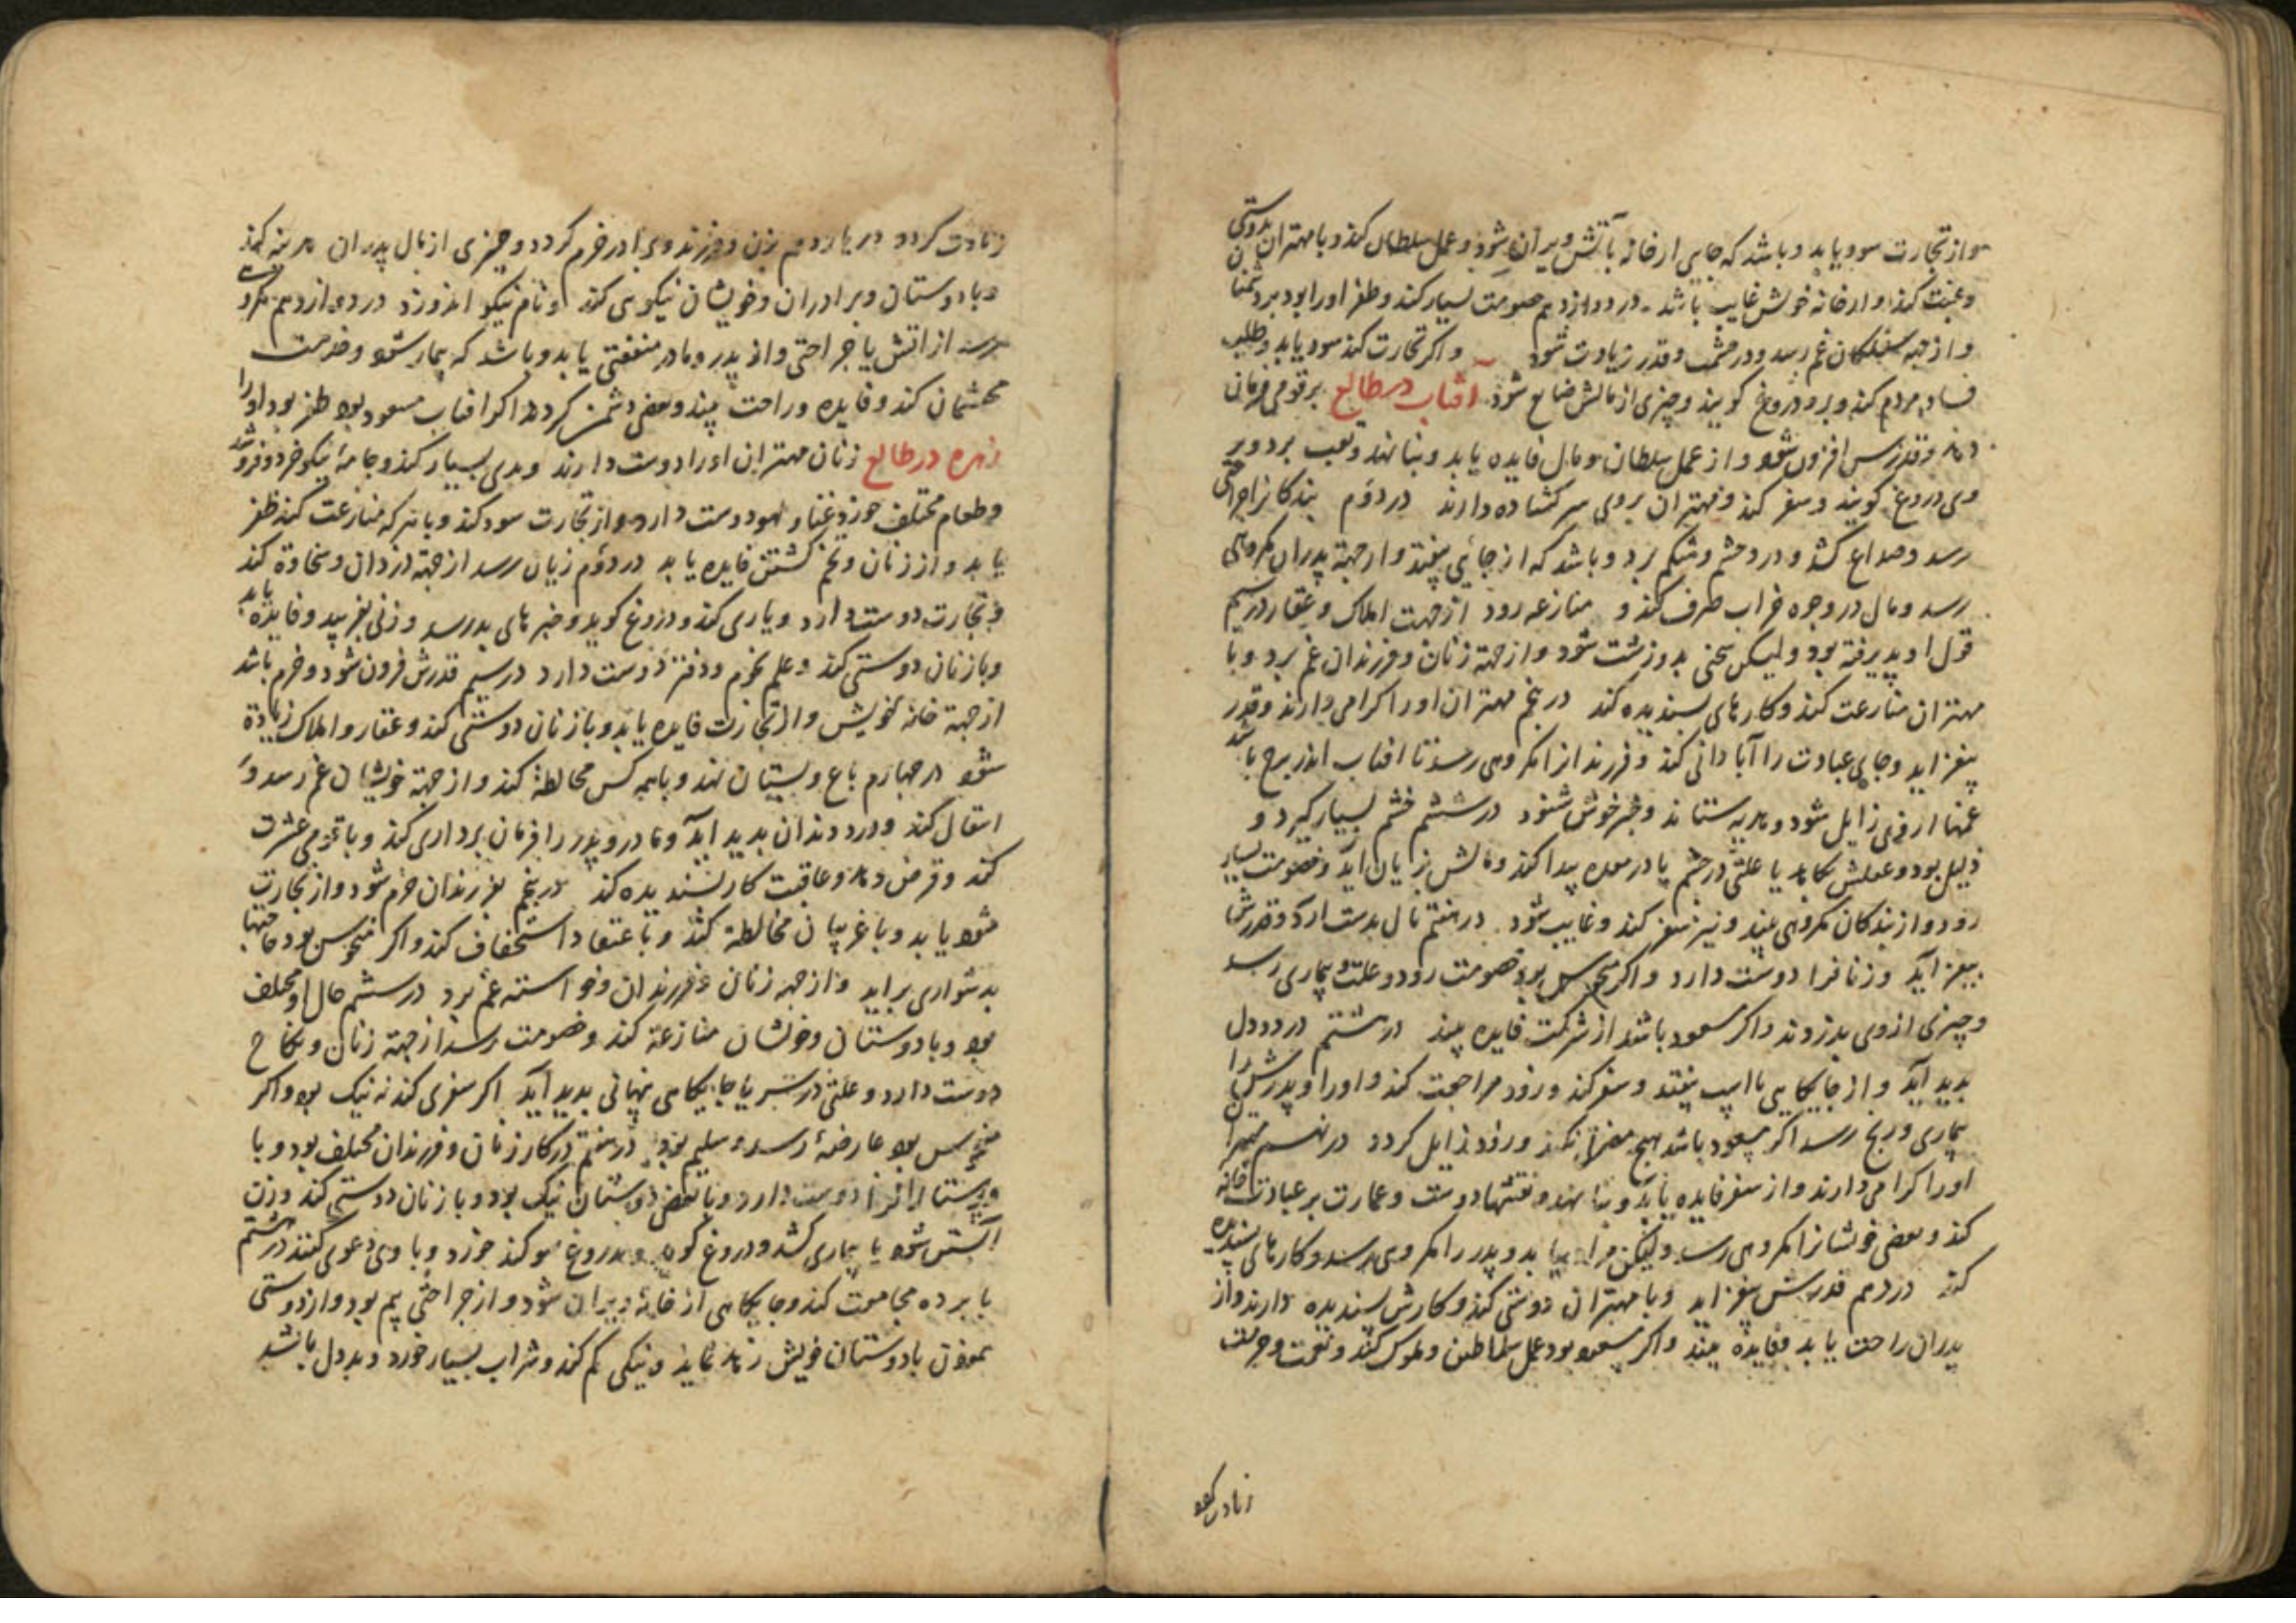 و از تجارت سود یابد و باشد که جایی از خانه بآتش ویران شود و عمل سلطان کند و با مهتران دوستی
و غیبت کند و از خانه خویش غایب باشد در دوازدهم خصومت بسیار کند و ظفر او را بود بر دشمنان
و از جهة بستگان غم رسد و در حشمت و قدر زیادت شود و اکر تجارت کند سود یابد و طلب
فساد مردم کند و برو دروغ کویند و چیزی از مالش ضایع شود آفتاب در طالع بر قومی فرمان
دهد و قدرش افزون شود و از عمل سلطان و مال فایده یابد و بنا نهد و تعب برد و بر
وی دروغ کویند و سفر کند و مهتران بروی سر کشاده دارند در دوّم بندکانرا جراحتی
رسد و صداع کشد و درد چشم و شکم برد و باشد که از جائی بیفتد و از جهة پدران مکروهی
رسد و مال در وجوه خراب صرف کند و منازعه رود از جهت املاک و عقار در سیم
قول او پذیرفته بود ولیکن سخنی بد و زشت شود و از جهة زنان و فرزندان غم برد و با
مهتران منازعت کند و کارهای پسندیده کند در پنجم مهتران او را کرامی دارند و قدر
بیفزاید و جای عبادت را آبادانی کند و فرزندانرا مکروهی رسد تا افتاب اندر برج باشد
غمها از وی زایل شود و هدیه ستاند و خبر خوش شنود در ششم خشم بسیار کیرد و
ذلیل بود و عقلش بکاهد یا علتی در چشم یا در معده پیدا کند و مالش زیان اید و خصومت بسیار
رود و از بندکان مکروهی بیند و نیز سفر کند و غایب شود در هفتم مال بدست ارد و قدرش
بیفزاید و زنانرا دوست دارد و اکر منحوس بود خصومت رود و علت و بیماری رسد
و چیزی از وی بدزدند و اکر مسعود باشد از شرکت فایده بیند در هشتم درد دل
پدید آید و از جایکاهی یا اسپ بیفتد و سفر کند و زود مراجعت کند و او را و پدرش را
بیماری و رنج رسد اکر مسعود باشد هیچ مضرة نکند و زود زایل کردد در نهم مهتران
او را کرامی دارند و از سفر فایده یابد و بنا نهد و نقشها دوست و عمارت بر عبادت خانه
کند و بعضی خویشانرا مکروهی رسد ولیکن یابد و پدر را مکروهی رسد و کارهای پسندیده
کند در دهم قدرش بیفزاید و با مهتران دوستی کند و کارش پسندیده دارند و از
پدران راحت یابد و فایده بیند و اکر مسعود بود عمل سلاطین و ملوک کند و نعمت و حرمت
زیادت کردد
زیادت کردد در یازدهم بزن و فرزند وی را در خرم کردد و چیزی از مال پدران هزینه کند
و با دوستان و برادران و خویشان نیکویی کند و نام نیکو اندوزد در دوازدهم مکروهی
رسد از اتش یا جراحتی و از پدر و مادر منفعتی یابد و باشد که بیمار شود و خدمت
محتشمان کند و فایده و راحت بیند و بعضی دشمن کردند اکر افتاب مسعود بود ظفر بود او را
زهره در طالع زنان مهتران او را دوست دارند و بدی بسیار کند و جامهٔ نیکو خرد و فروشد
و طعام مختلف خورد و غنا و لهو دوست دارد و از تجارت سود کند و با هر که منازعت کند ظفر
یابد و از زنان و تخم کشتن فایده یابد در دوّم زیان رسد از جهة دزدان و سخاوة کند
و تجارت دوست دارد و یاری کند و دروغ کوید و خبرهای بد رسد و زنی بفریبد و فایده یابد
و با زنان دوستی کند و علم نجوم و دفتر دوست دارد در سیم قدرش فزون شود و خرم باشد
از جهة خانه خویش و از تجارت فایده یابد و با زنان دوستی کند و عقار و املاک زیادة
شود در چهارم باغ و بستان نهد و با همه کس مخالطة کند و از جهة خویشان غم رسد و
انتقال کند و درد دندان پدید آید و مادر و پدر را فرمان برداری کند و با قومی عشرت
کند و قرض دهد و عاقبت کار پسندیده کند در پنجم بفرزندان خرم شود و از تجارت
سود یابد و با غریبان مخالطة کند و باعتقاد استخفاف کند و اکر منحوس بود حاجتها
بدشواری براید و از جهة زنان و فرزندان و خواسته غم برد در ششم حال او مختلف
بود و با دوستان و خویشان منازعة کند و خصومت رسد از جهة زنان و نکاح
دوست دارد و علتی در سر یا جایکاهی نهانی پدید آید اکر سفری کند نه نیک بود و اکر
منحوس بود عارضهٔ رسد و سلیم بود در هفتم در کار زنان و فرزندان مختلف بود و با
پرستارانرا دوست دارد و با بعضی دوستان نیک بود و با زنان دوستی کند و زن
آبستن شود یا بیماری کشد و دروغ کوید و بدروغ سوکند خورد و با وی دعوی کنند در هشتم
با برده مجامعت کند و جایکاهی از خانه ویران شود و از جراحتی بیم بود و از دوستی
با دوستان خویش زهد نماید و نیکی کم کند و شراب بسیار خورد و بد دل باشد